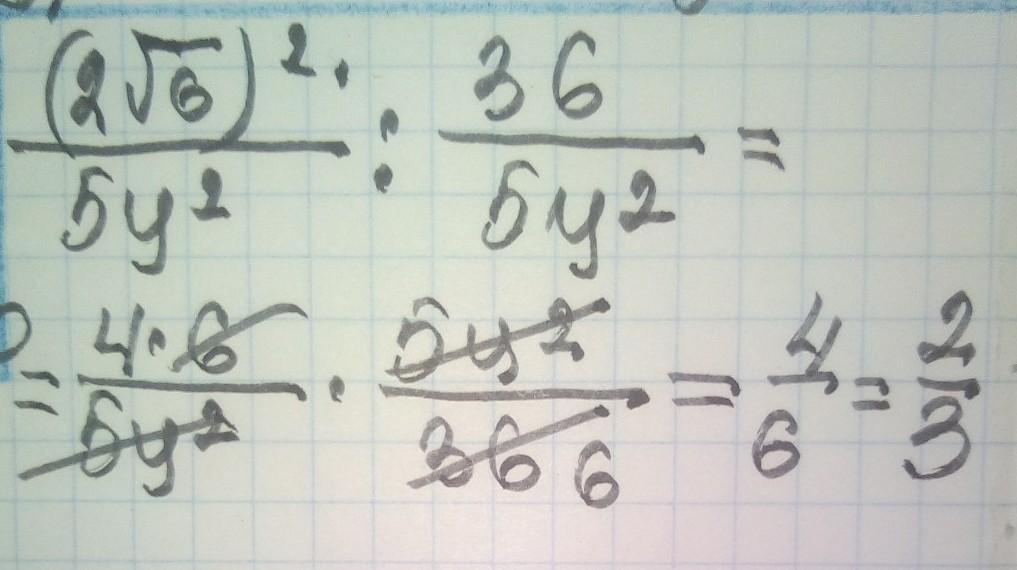 (2√6)² / 5y² : 36 / 5y² =
= 4·6 / 5y² · 5y² / 36 6 = 4/6 = 2/3